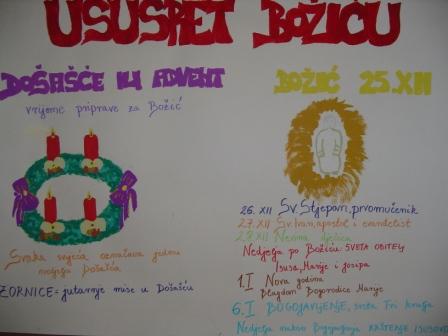 USUSRET BOŽIĆU
DOŠAŠĆE ILI ADVENT
vrijeme priprave za Božić
Svaka svijeća označava jednu
nedjelju došašća
ZORNICE = jutarnje mise u Došašću
BOŽIĆ 25.XII
26. XII Sv. Stjepan, prvomučenik
27. XII Sv. Ivan, apostol i evanđelist
28. XII Nevina dječica
Nedjelja po Božiću: SVETA OBITELJ
Isusa, Marije i Josipa
1. I Nova godina
Blagdan Bogorodice Marije
6. I BOGOJAVLJENJE, sveta Tri kralja
Nedjelja nakon Bogojavljenja KRŠTENJE ISUSOVO